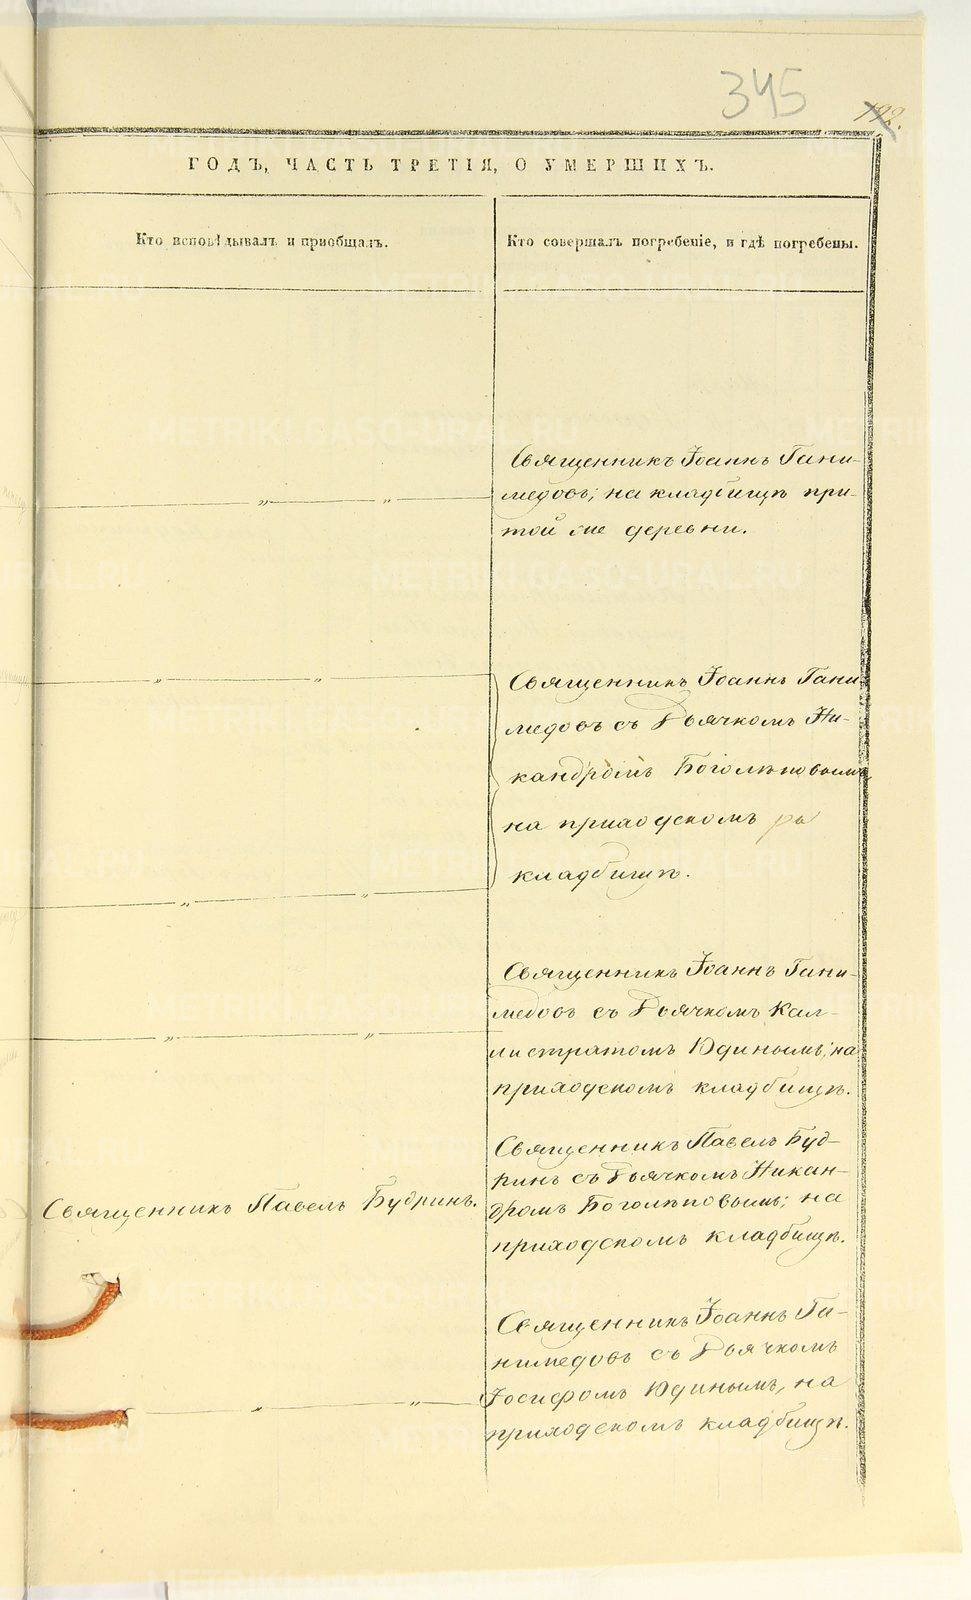 345
192.
ГОДЪ, ЧАСТЬ ТРЕТІЯ, О УМЕРШИХЪ.
Кто исповѣдывалъ и приобщалъ.
Кто совершалъ погребеніе, и гдѣ погребены.
Священникъ Іоаннъ Гани-
медовъ; на кладбищѣ при
той же деревни.
Священникъ Іоаннъ Гани-
медовъ съ Дьячкомъ Ни-
кандромъ Боголѣповымъ
на приходскомъ
кладбищѣ.
Священникъ Іоаннъ Гани-
медовъ съ Дьячкомъ Кал-
листратомъ Юдинымъ; на
приходскомъ кладбищѣ.
Священникъ Павелъ Будринъ.
Священникъ Павелъ Буд-
ринъ съ Дьячкомъ Никан-
дромъ Боголѣповымъ; на
приходскомъ кладбищѣ.
Священникъ Іоаннъ Га-
нимедовъ съ Дьячкомъ
Іосифомъ Юдинымъ, на
приходскомъ кладбищѣ.
METRIKI.GASO-URAL.RU